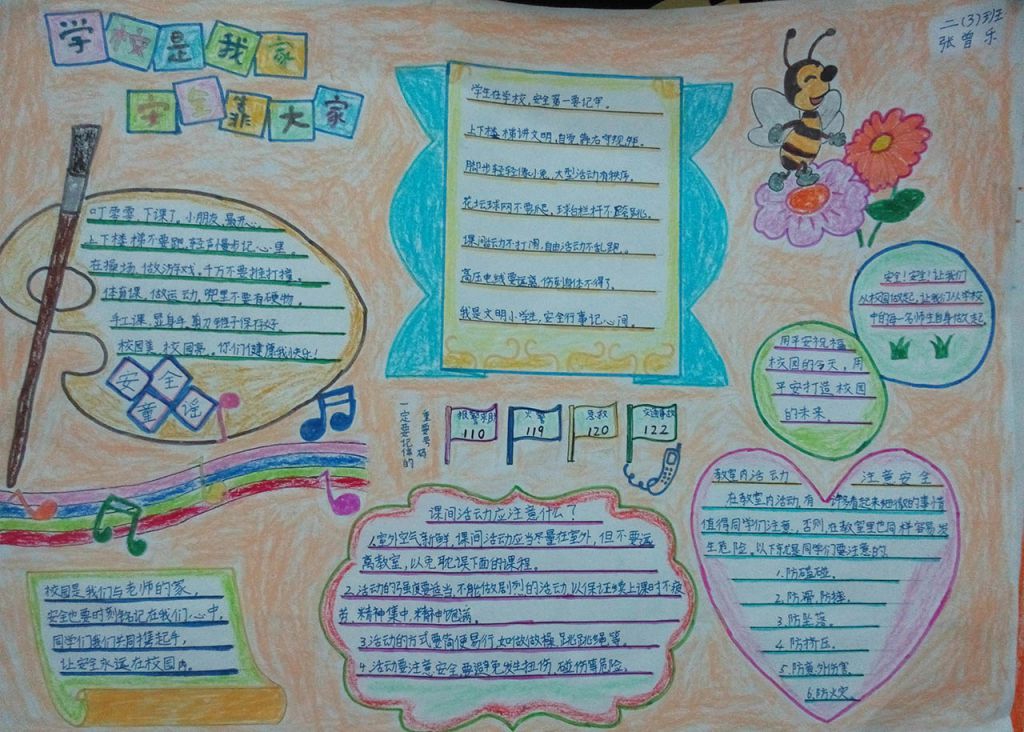 学校是我家
安全靠大家
二(3)班
张曾乐
叮零零,下课了,小朋友,最开心,
上下楼梯不要跑,轻声慢步记心里。
在操场,做游戏,千万不要推打撞。
体育课,做运动,兜里不要有硬物。
手工课,显身手,剪刀锥子保存好。
校园美,校园亲,你们健康我快乐!
安全
童谣
学生在学校,安全第一要记牢。
上下楼梯讲文明,自觉靠右守规矩。
脚步轻轻像小兔,大型活动有秩序。
花坛球网不要爬,球台栏杆不跨跳。
课间活动不打闹,自由活动不乱跑。
高压电线要远离,伤到身体不得了。
我是文明小学生,安全行事记心间。
安全!安全!让我们
从校园做起,让我们从学校
中的每一名师生自身做起。
用平安祝福
校园的今天,用
平安打造校园
的未来。
重要号码
一定要记住的
报警求助
110
火警
119
急救
120
交通事故
122
校园是我们与老师的家,
安全也要时刻铭记在我们心中,
同学们我们共同携起手,
让安全永远在校园内。
课间活动应注意什么?
1.室外空气新鲜,课间活动应当尽量在室外,但不要远
离教室,以免耽误下面的课程。
2.活动的强度要适当,不能做剧烈的活动,以保证继续上课时不疲
劳、精神集中、精神饱满。
3.活动的方式要简便易行,如做做操、跳跳绳等。
4.活动要注意安全,要避免发生扭伤、碰伤等危险。
教室内活动 注意安全
在教室内活动,有许多看起来细微的事情
值得同学们注意,否则,在教室里也同样容易发
生危险。以下就是同学们要注意的
1.防磕碰。
2.防滑、防摔。
3.防坠落。
4.防挤压。
5.防意外伤害
6.防火灾。